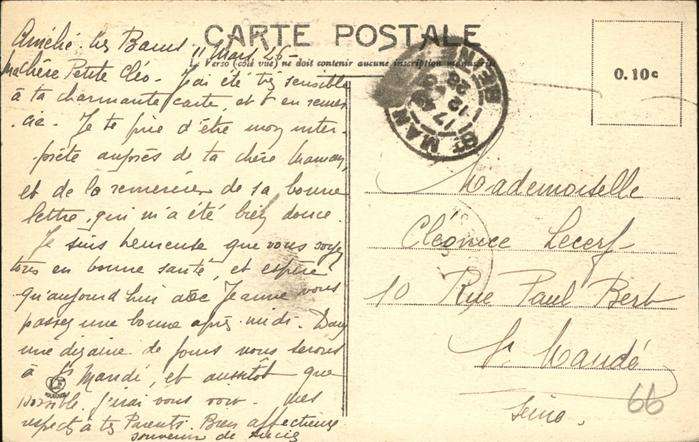 CARTE POSTALE
Le Verso (côté vue) ne doit contenir aucune inscription manuscrite
0.10c
Amélie-les Bains 11 Mars 26-
Ma Chère Petite Cléo - J'ai été très sensible
à ta charmante carte, et t'en remer-
cie. Je te prie d'être mon inter-
prète auprès de ta chère Maman,
et de la remercier de sa bonne
lettre, qui m'a été bien douce.
Je suis heureuse que vous soyez
tous en bonne santé, et espère
qu'aujourd'hui avec Jeanne vous
passez une bonne après-midi. Dans
une dizaine de jours nous serons
à St Mandé, et aussitôt que
possible j'irai vous voir. Mes
respects à tes Parents. Bien affectueux
souvenir de Lucie
ST MANDÉ
SEINE
17
12
26
Mademoiselle
Cléonice Lecerf
10 Rue Paul Bert
St Mandé
Seine.
66